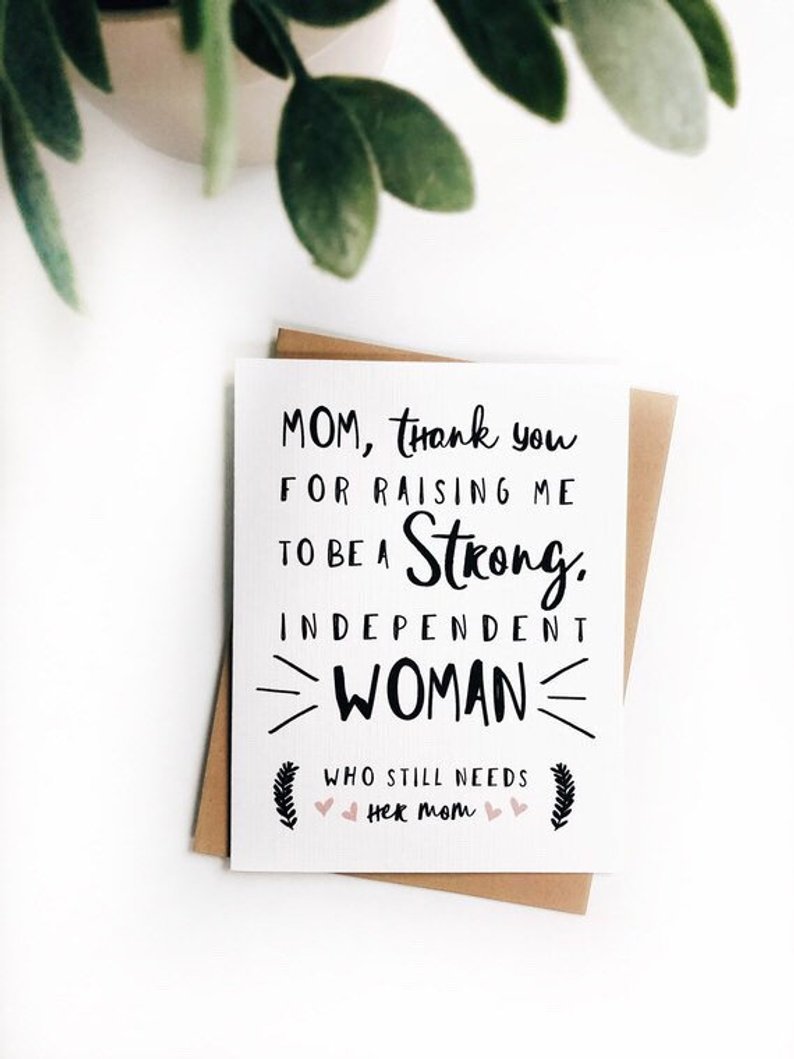 MOM, thank you
FOR RAISING ME
TO BE A Strong,
INDEPENDENT
WOMAN
WHO STILL NEEDS
Her mom